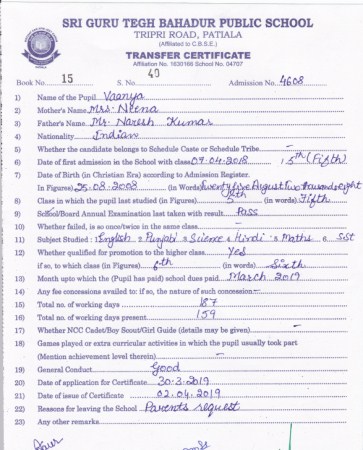 SRI GURU TEGH BAHADUR PUBLIC SCHOOL
TRIPRI ROAD, PATIALA
(Affiliated to C.B.S.E.)
TRANSFER CERTIFICATE
Affiliation No. 1630168 School No. 04707
Book No. 15 S. No. 40 Admission No. 4608
1) Name of the Pupil Vaanya
2) Mother's Name Mrs. Neena
3) Father's Name Mr. Naresh Kumar
4) Nationality Indian
5) Whether the candidate belongs to Schedule Caste or Schedule Tribe -
6) Date of first admission in the School with class 09.04.2018, 5th (Fifth)
7) Date of Birth (in Christian Era) according to Admission Register.
In Figures) 25.08.2008 (in Words) Twenty five August Two thousand eight
8) Class in which the pupil last studied (in Figures) 5th (in words) Fifth
9) School/Board Annual Examination last taken with result Pass
10) Whether failed, is so once/twice in the same class
11) Subject Studied : English Punjabi Science Hindi Maths SSt
12) Whether qualified for promotion to the higher class Yes
if so, to which class (in Figures) 6th (in words) Sixth
13) Month upto which the (Pupil has paid) school dues paid March 2019
14) Any fee concessions availed to: if so, the nature of such concession -
15) Total no. of working days 187
16) Total no. of working days present 159
17) Whether NCC Cadet/Boy Scout/Girl Guide (details may be given) -
18) Games played or extra curricular activities in which the pupil usually took part
(Mention achievement level therein) -
19) General Conduct Good
20) Date of application for Certificate 30.3.2019
21) Date of issue of Certificate 02.04.2019
22) Reasons for leaving the School Parents request
23) Any other remarks